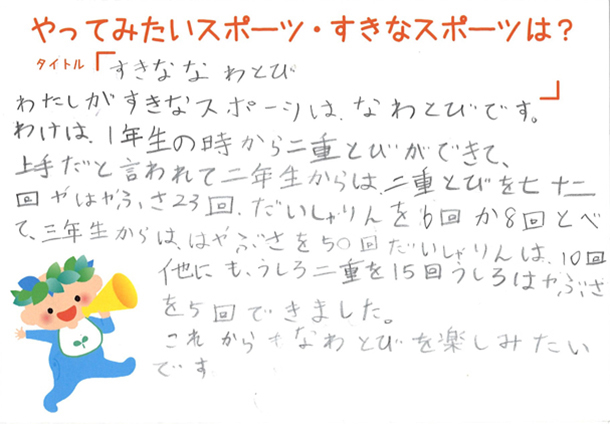 やってみたいスポーツ・すきなスポーツは？
タイトル「すきななわとび」
わたしがすきなスポーツは、なわとびです。
わけは、1年生の時から二重とびができて、
上手だと言われて二年生からは、二重とびを七十二
回やはやぶさ23回、だいしゃりんを6回か8回とべ
て、三年生からは、はやぶさを50回だいしゃりんは、10回
他にも、うしろ二重を15回うしろはやぶさ
を5回できました。
これからもなわとびを楽しみたい
です